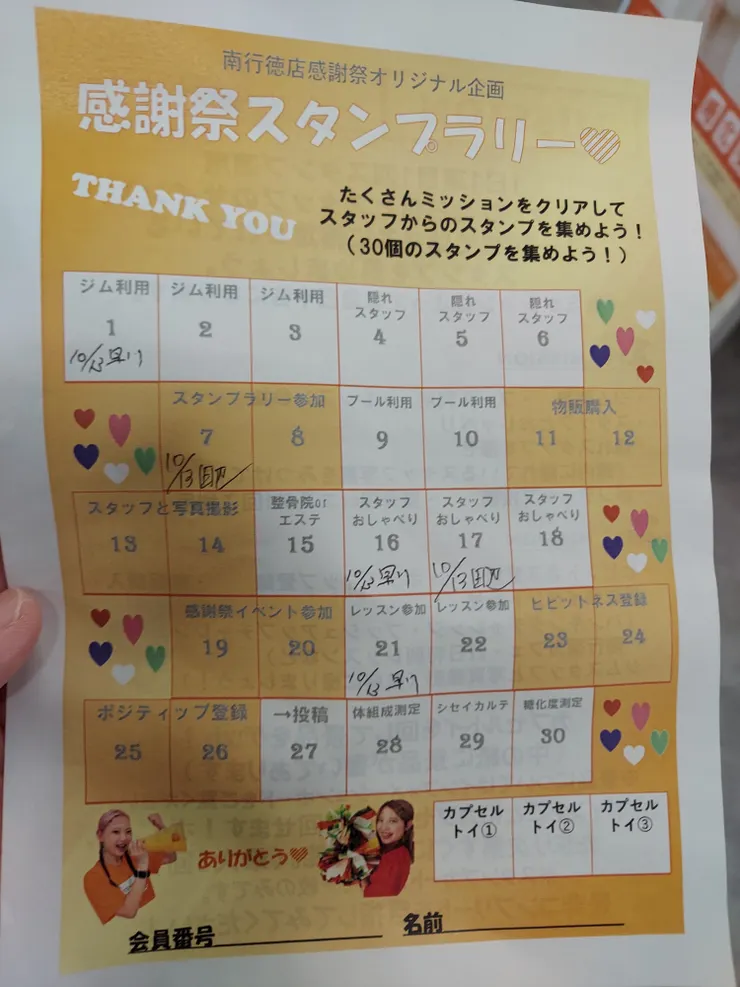 南行徳店感謝祭オリジナル企画
感謝祭スタンプラリー♡
THANK YOU
たくさんミッションをクリアして
スタッフからのスタンプを集めよう！
（30個のスタンプを集めよう！）
ジム利用 ジム利用 ジム利用 隠れスタッフ 隠れスタッフ 隠れスタッフ
1 2 3 4 5 6
10/13 早川
スタンプラリー参加 プール利用 プール利用 物販購入
7 8 9 10 11 12
10/13
スタッフと写真撮影 整骨院orエステ スタッフおしゃべり スタッフおしゃべり スタッフおしゃべり
13 14 15 16 17 18
10/13 早川 10/13
感謝祭イベント参加 レッスン参加 レッスン参加 ヒビットネス登録
19 20 21 22 23 24
10/13 早川
ポジティップ登録 →投稿 体組成測定 シセイカルテ 糖化度測定
25 26 27 28 29 30
ありがとう♡
カプセルトイ① カプセルトイ② カプセルトイ③
会員番号 名前